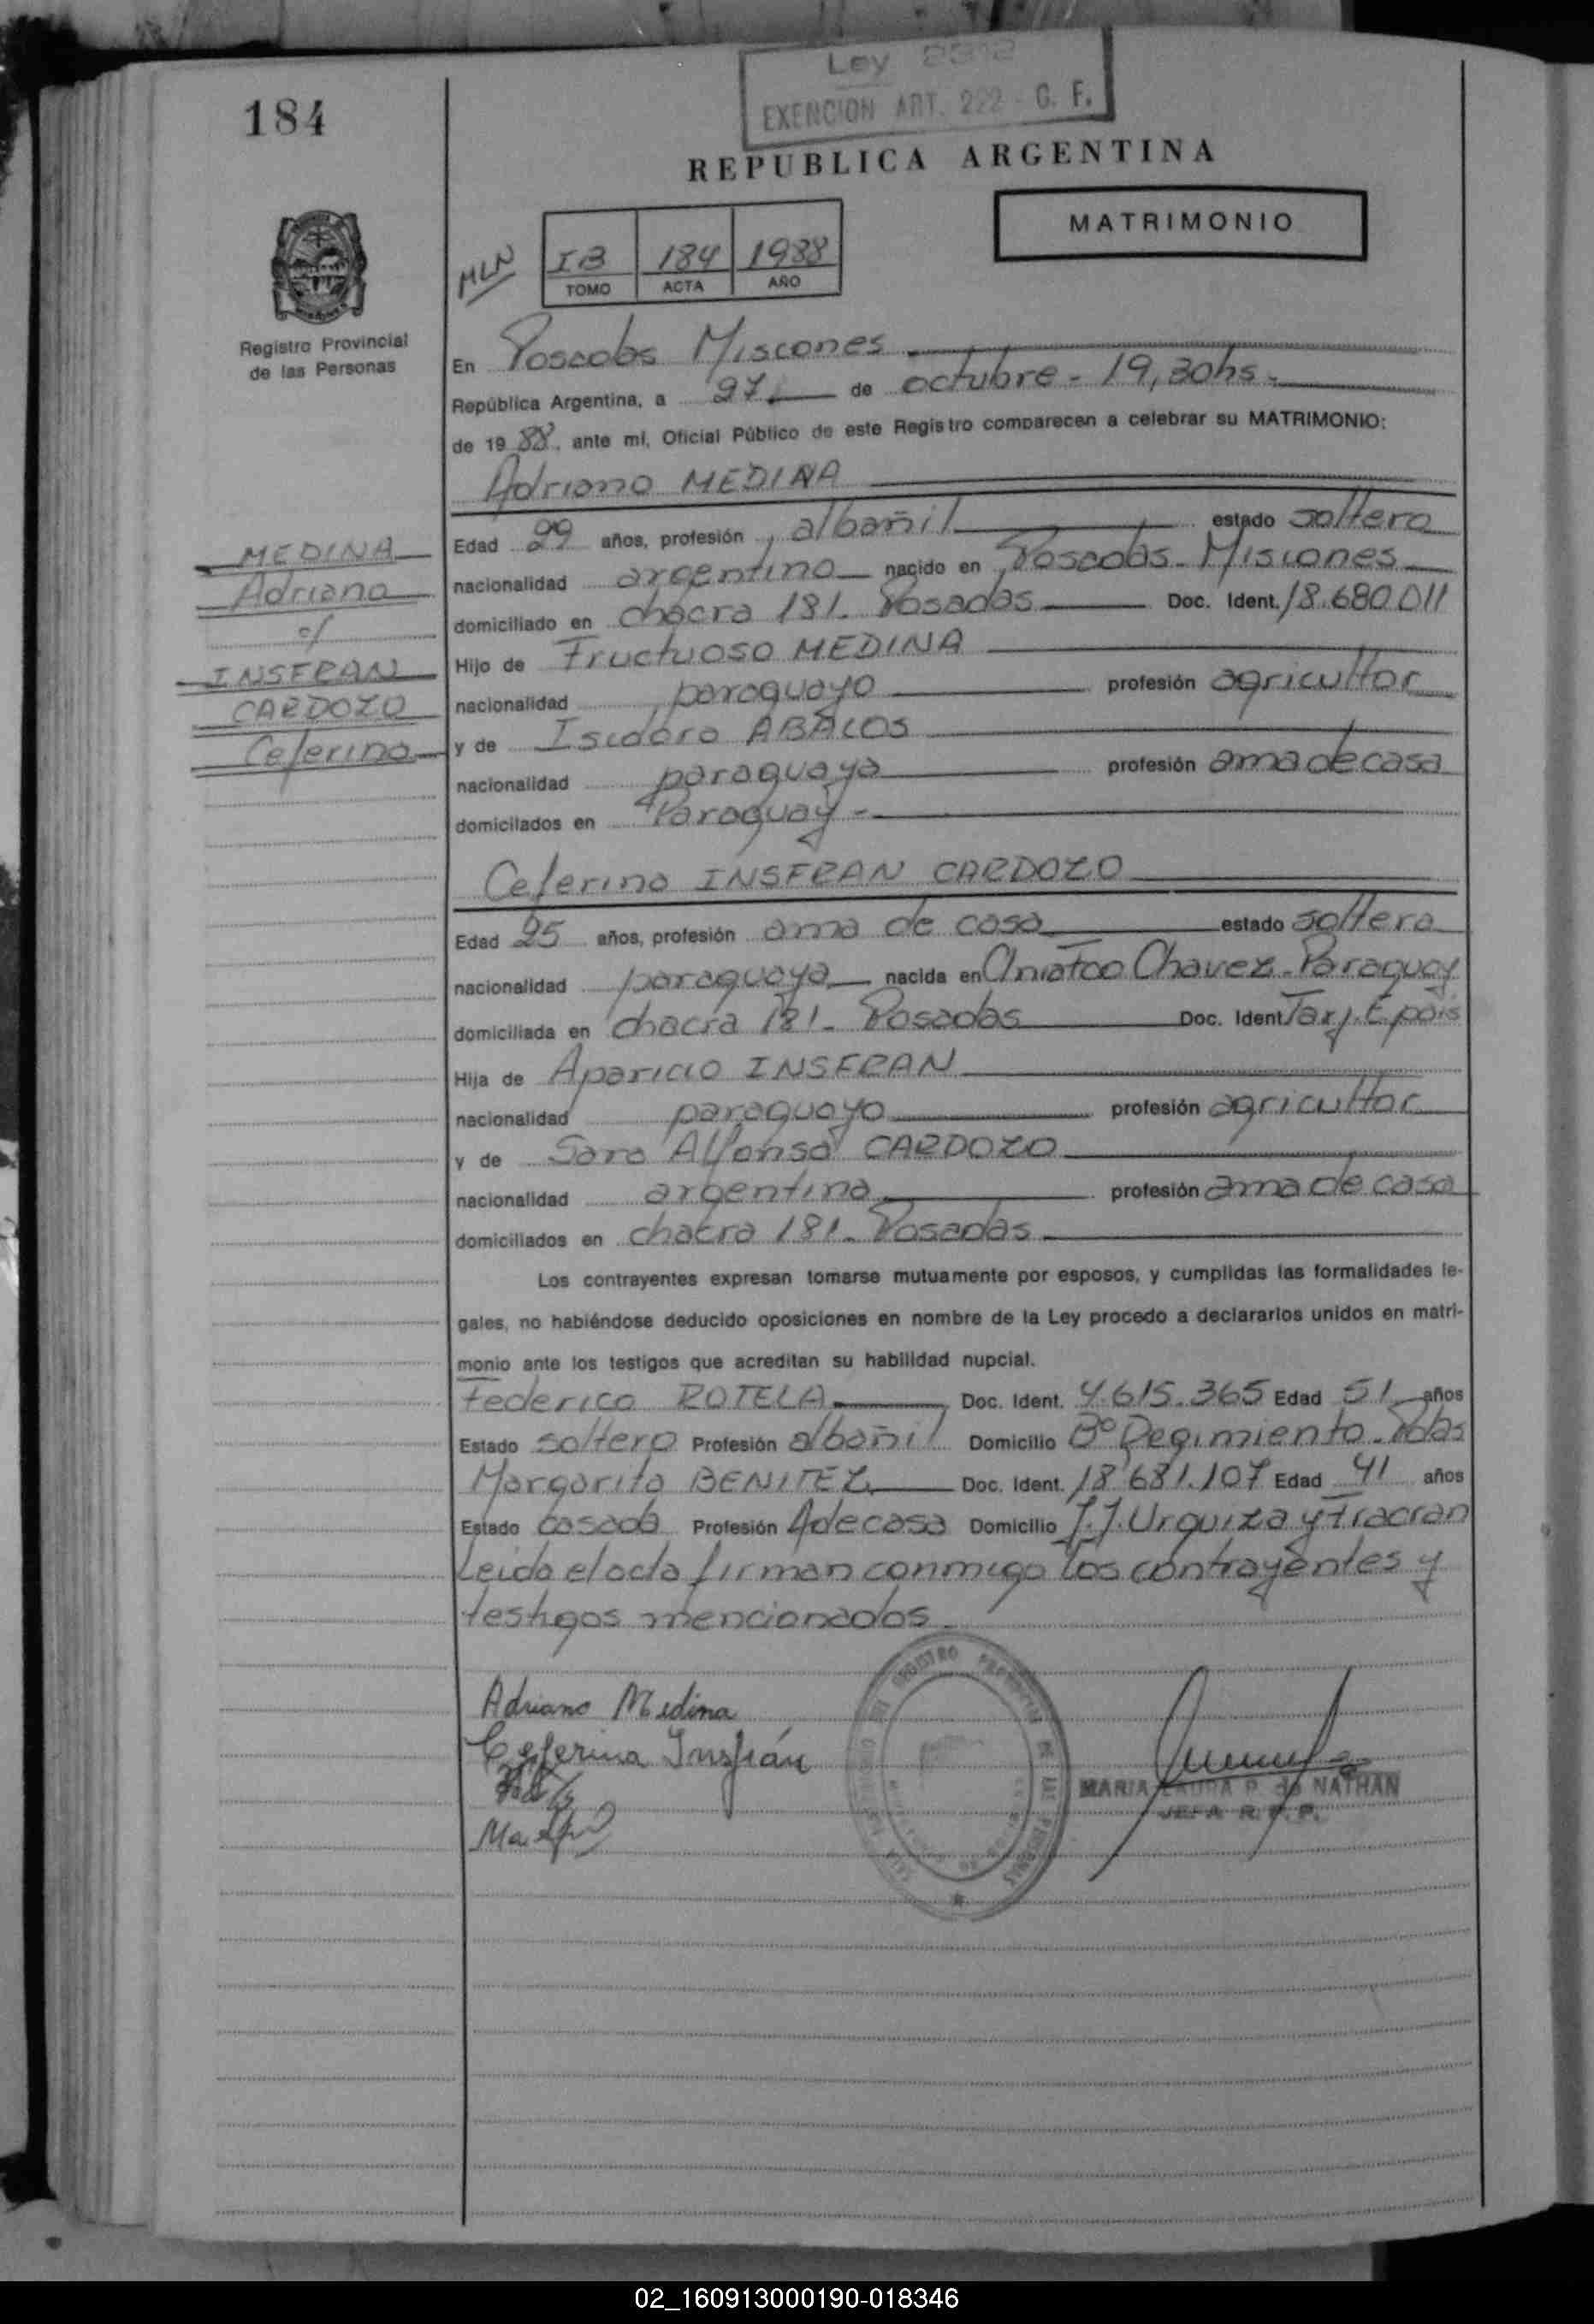 Ley 2312
EXENCION ART. 222 - C. F.
184
REPUBLICA ARGENTINA
MATRIMONIO
MLN
IB 184 1988
TOMO ACTA AÑO
Registro Provincial
de las Personas
En Posadas Misiones
República Argentina, a 27 de octubre - 19,30hs.
de 1988, ante mí, Oficial Público de este Registro comparecen a celebrar su MATRIMONIO:
Adriano MEDINA
MEDINA
Adriano
c/
INSFRAN
CARDOZO
Ceferina
Edad 29 años, profesión albañil estado soltero
nacionalidad argentino nacido en Posadas - Misiones
domiciliado en chacra 181. Posadas Doc. Ident. 18.680.011
Hijo de Fructuoso MEDINA
nacionalidad paraguayo profesión agricultor
y de Isidora ABALOS
nacionalidad paraguaya profesión ama de casa
domiciliados en Paraguay -
Ceferina INSFRAN CARDOZO
Edad 25 años, profesión ama de casa estado soltera
nacionalidad paraguaya nacida en Chavez - Paraguay
domiciliada en chacra 181 - Posadas Doc. Ident. Tarj. E. pais
Hija de Aparicio INSFRAN
nacionalidad paraguayo profesión agricultor
y de Sara Alfonsa CARDOZO
nacionalidad argentina profesión ama de casa
domiciliados en chacra 181 - Posadas
Los contrayentes expresan tomarse mutuamente por esposos, y cumplidas las formalidades le-
gales, no habiéndose deducido oposiciones en nombre de la Ley procedo a declararlos unidos en matri-
monio ante los testigos que acreditan su habilidad nupcial.
Federico ROTELA Doc. Ident. 4.615.365 Edad 51 años
Estado soltero Profesión albañil Domicilio Bº Regimiento - Pdas
Margarita BENITEZ Doc. Ident. 18.681.107 Edad 41 años
Estado casada Profesión A de casa Domicilio J.J. Urquiza y Tracran
Leida el acta firman conmigo los contrayentes y
testigos mencionados
Adriano Medina
Ceferina Insfrán
MARIA LAURA P. de NATHAN
JEFA R. P. P.
02_160913000190-018346